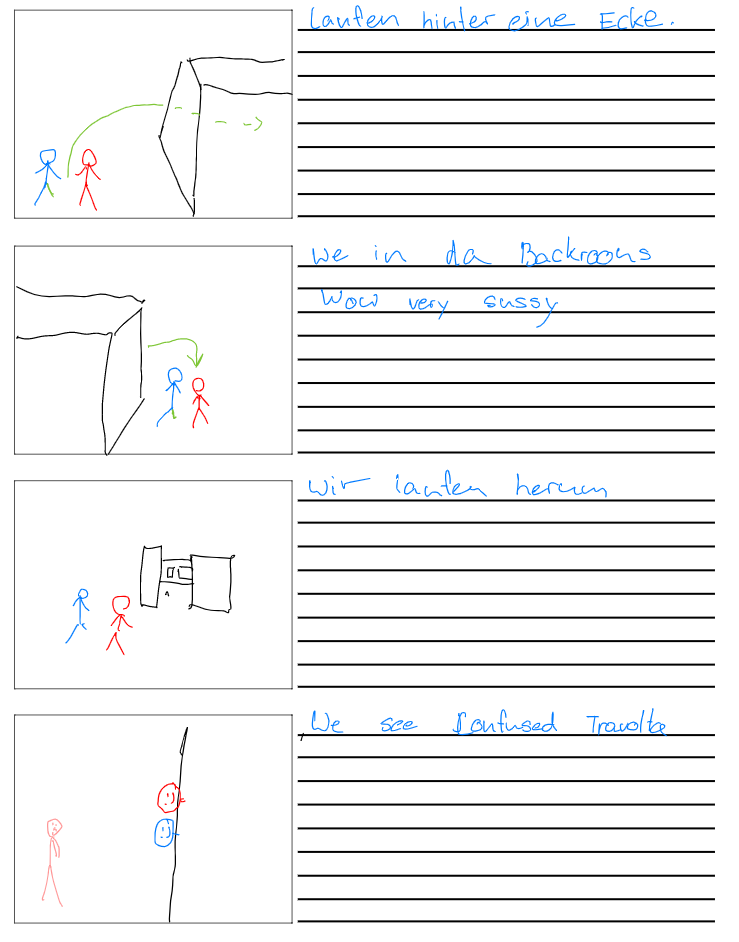 Laufen hinter eine Ecke.
We in da Backrooms
Wow very sussy
wir laufen herum
We see Confused Travolta